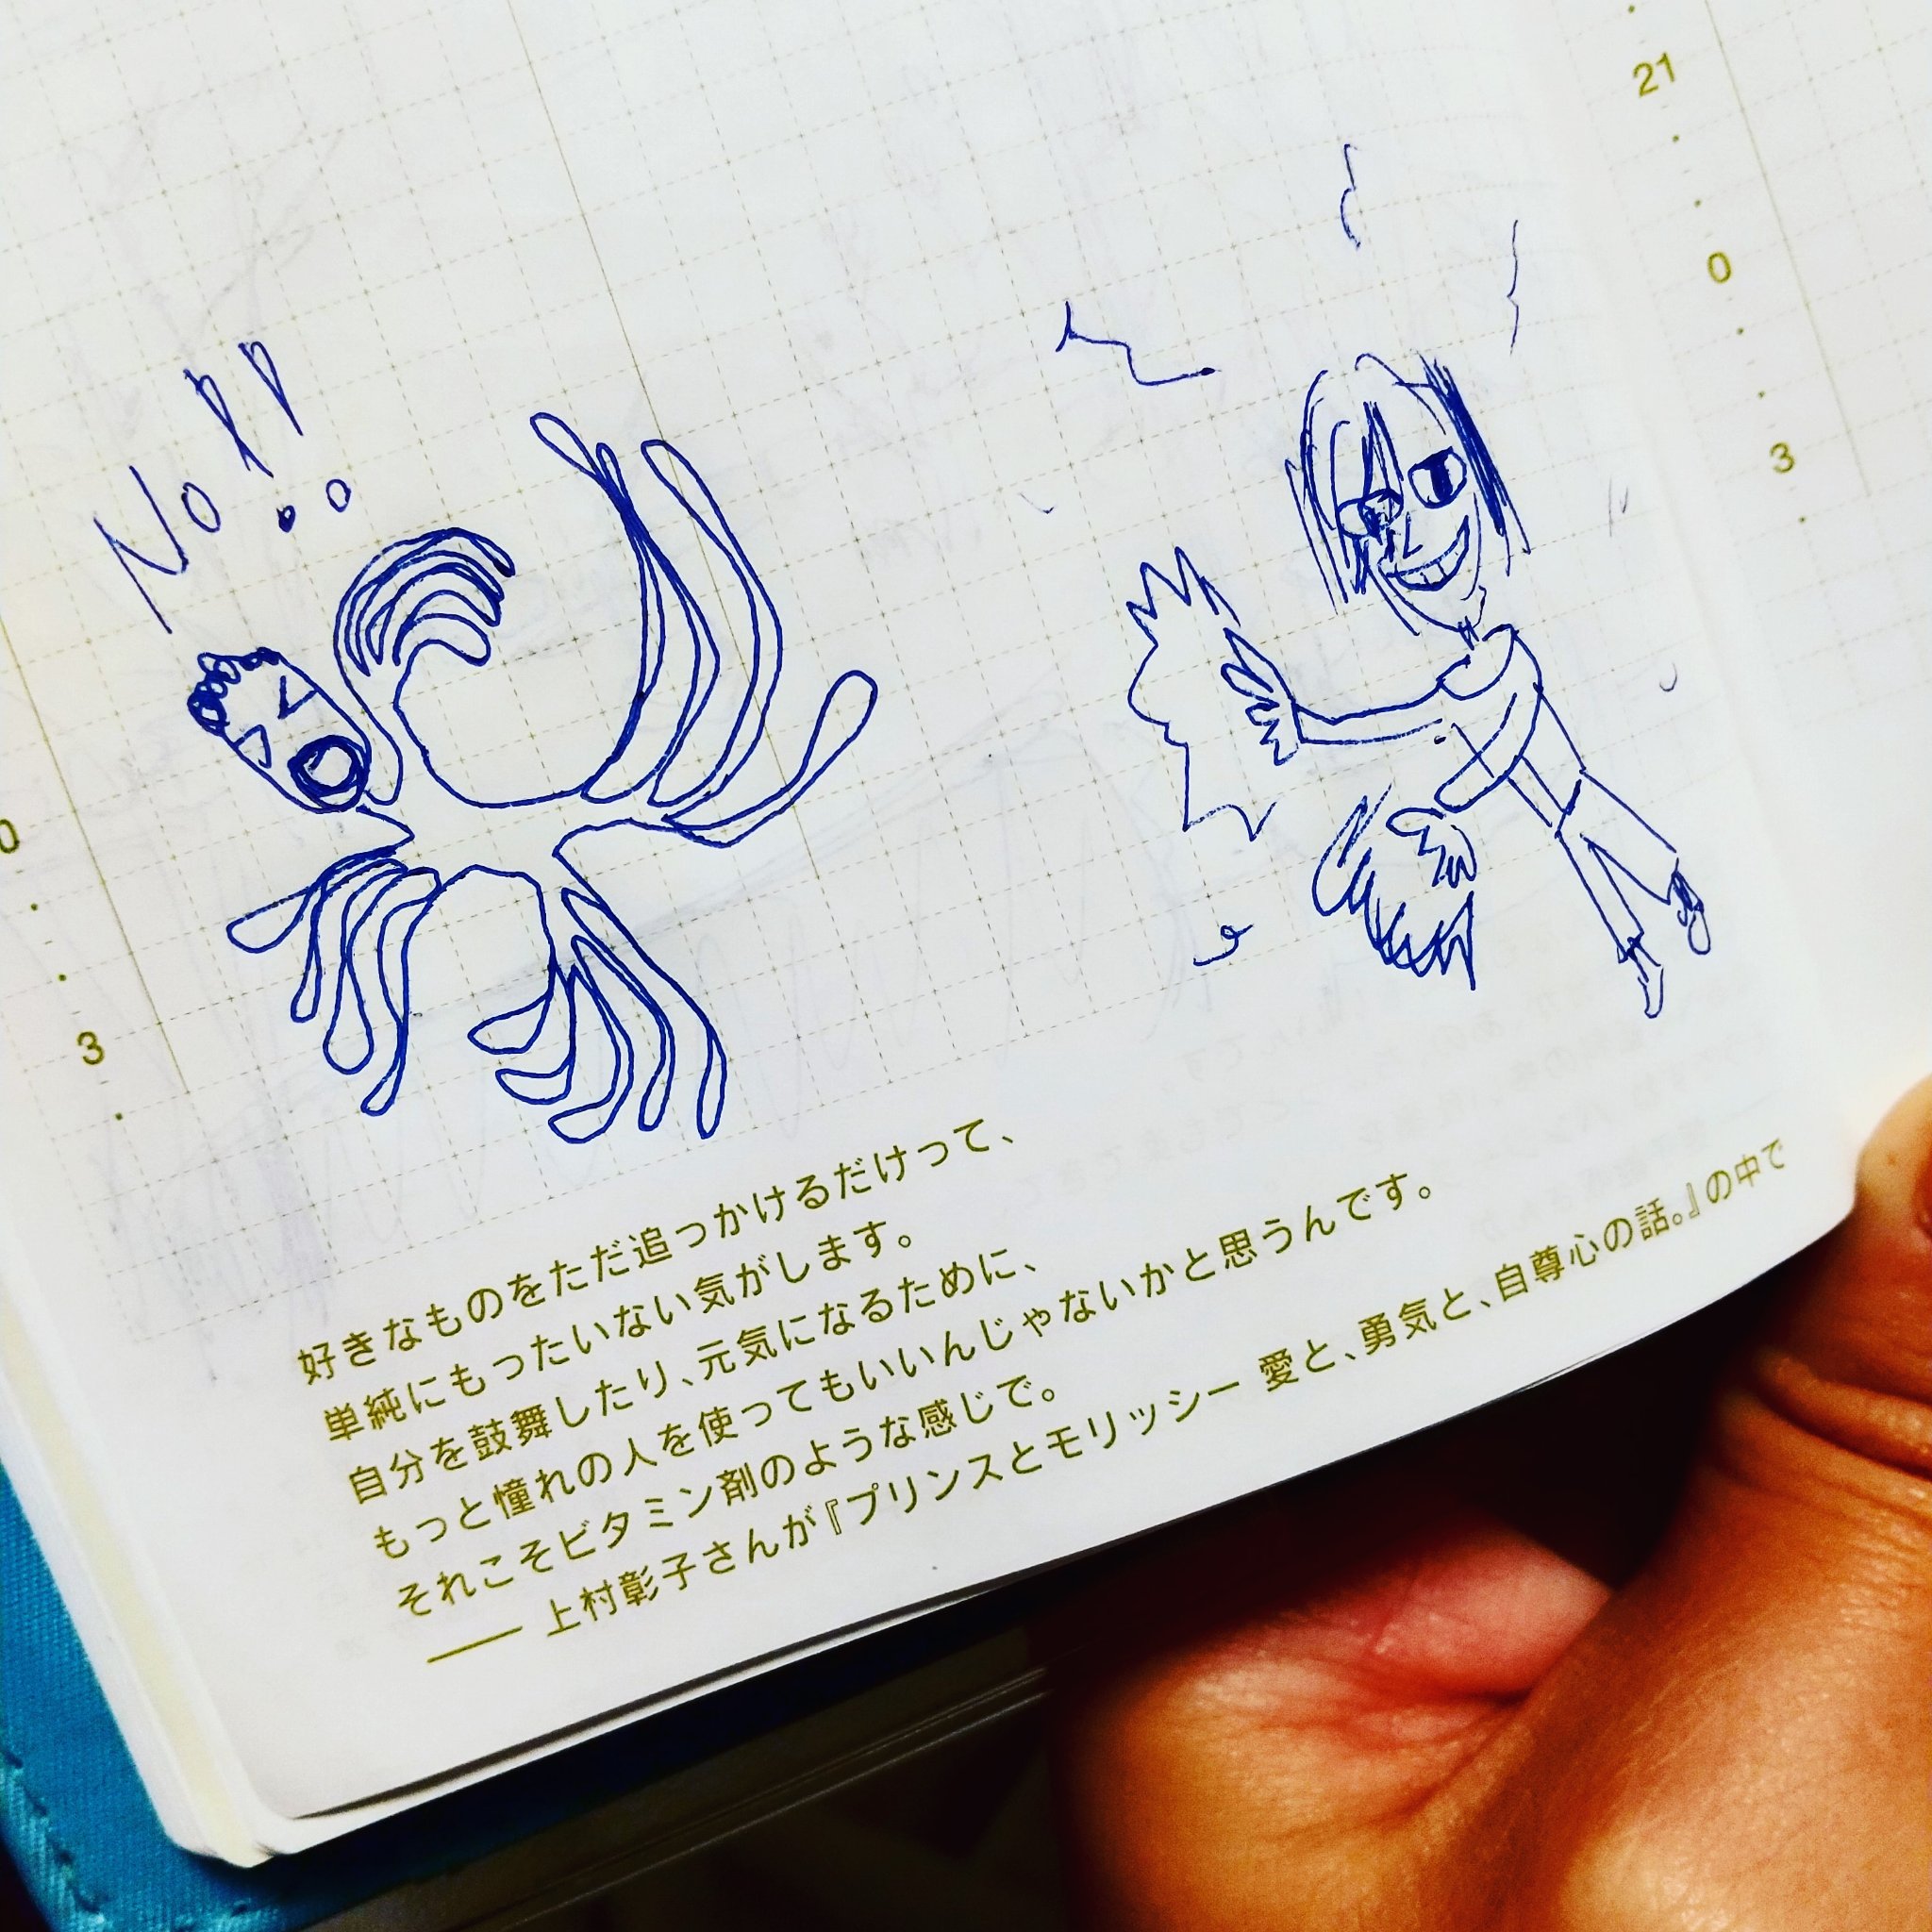 No!!
21
0
3
0
3
好きなものをただ追っかけるだけって、
単純にもったいない気がします。
自分を鼓舞したり、元気になるために、
もっと憧れの人を使ってもいいんじゃないかと思うんです。
それこそビタミン剤のような感じで。
—— 上村彰子さんが『プリンスとモリッシー 愛と、勇気と、自尊心の話。』の中で